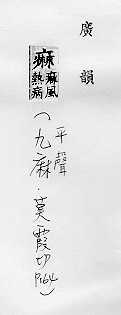 廣韻
痳
痳風
熱病
(平聲
九麻·莫霞切P164)